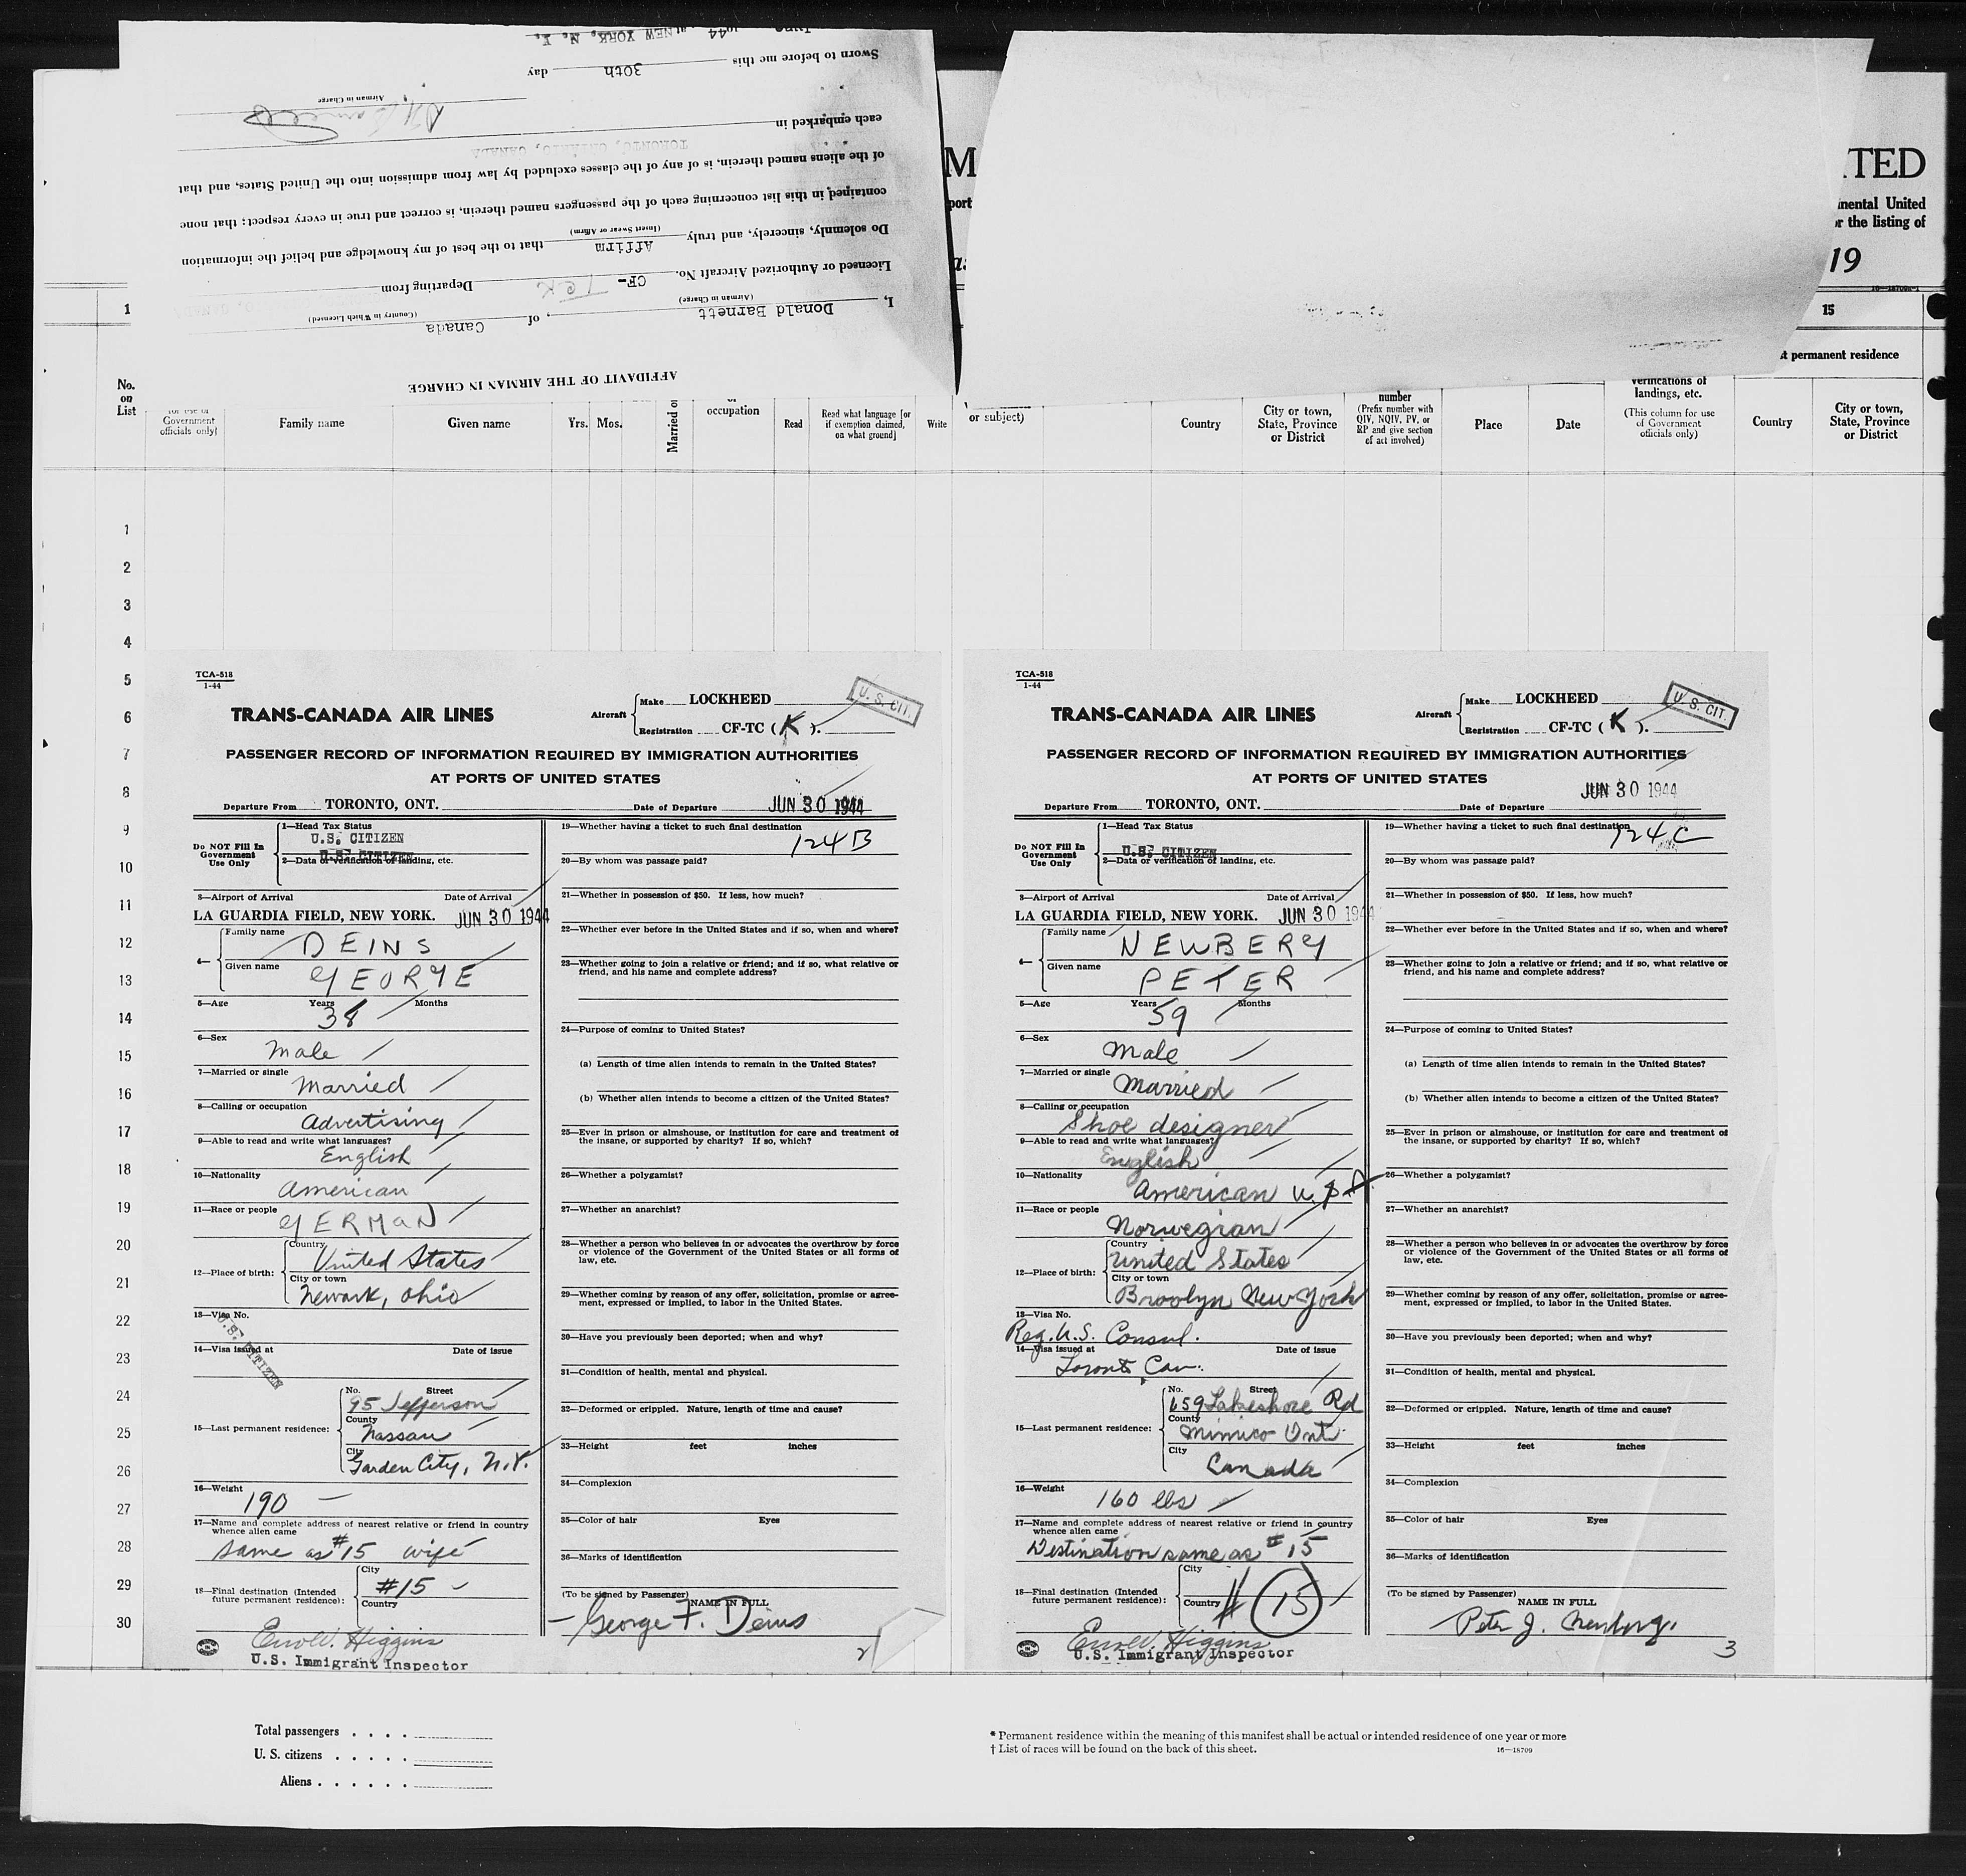 June 1944 at NEW YORK, N. Y.
Sworn to before me this 30th day
Airman in Charge
each embarked in
TORONTO, ONTARIO, CANADA
of the aliens named therein, is of any of the classes excluded by law from admission into the United States, and that
contained in this list concerning each of the passengers named therein, is correct and true in every respect; that none
(Insert Swear or Affirm)
Do solemnly, sincerely, and truly Affirm that to the best of my knowledge and belief the information
Licensed or Authorized Aircraft No. CF- TCK Departing from
(Airman in Charge) (Country in Which Licensed)
I, Donald Barnett, of Canada
AFFIDAVIT OF THE AIRMAN IN CHARGE
M
ITED
port
inental United
or the listing of
19
1
15
t permanent residence
No. on List
for use of Government officials only)
Family name
Given name
Yrs. Mos.
Married or
occupation
Read
Read what language [or if exemption claimed, on what ground]
Write
or subject)
Country
City or town, State, Province or District
number (Prefix number with QIV, NQIV, PV, or RP and give section of act involved)
Place
Date
verifications of landings, etc.
(This column for use of Government officials only)
Country
City or town, State, Province or District
1
2
3
4
5
6
7
8
9
10
11
12
13
14
15
16
17
18
19
20
21
22
23
24
25
26
27
28
29
30
TCA-518
1-44
TRANS-CANADA AIR LINES
Aircraft
Make LOCKHEED
Registration CF-TC (K).
U. S. CIT.
PASSENGER RECORD OF INFORMATION REQUIRED BY IMMIGRATION AUTHORITIES
AT PORTS OF UNITED STATES
Departure From TORONTO, ONT. Date of Departure JUN 30 1944
Do NOT Fill In Government Use Only
1—Head Tax Status
U.S. CITIZEN
U.S. CITIZEN
2—Data or verification of landing, etc.
3—Airport of Arrival Date of Arrival
LA GUARDIA FIELD, NEW YORK. JUN 30 1944
4— Family name DEINS
Given name GEORGE
5—Age Years 38 Months
6—Sex Male
7—Married or single Married
8—Calling or occupation Advertising
9—Able to read and write what languages? English
10—Nationality American
11—Race or people GERMAN
12—Place of birth: Country United States
City or town Newark, Ohio
13—Visa No.
U.S. CITIZEN
14—Visa issued at Date of issue
15—Last permanent residence: No. Street 95 Jefferson
County Nassau
City Garden City, N.Y.
16—Weight 190
17—Name and complete address of nearest relative or friend in country whence alien came
same as #15 wife
18—Final destination (Intended future permanent residence): City #15
Country
U.S. Immigrant Inspector
19—Whether having a ticket to such final destination 124 B
20—By whom was passage paid?
21—Whether in possession of $50. If less, how much?
22—Whether ever before in the United States and if so, when and where?
23—Whether going to join a relative or friend; and if so, what relative or friend, and his name and complete address?
24—Purpose of coming to United States?
(a) Length of time alien intends to remain in the United States?
(b) Whether alien intends to become a citizen of the United States?
25—Ever in prison or almshouse, or institution for care and treatment of the insane, or supported by charity? If so, which?
26—Whether a polygamist?
27—Whether an anarchist?
28—Whether a person who believes in or advocates the overthrow by force or violence of the Government of the United States or all forms of law, etc.
29—Whether coming by reason of any offer, solicitation, promise or agreement, expressed or implied, to labor in the United States.
30—Have you previously been deported; when and why?
31—Condition of health, mental and physical.
32—Deformed or crippled. Nature, length of time and cause?
33—Height feet inches
34—Complexion
35—Color of hair Eyes
36—Marks of identification
(To be signed by Passenger) NAME IN FULL
George F. Deins
2
TCA-518
1-44
TRANS-CANADA AIR LINES
Aircraft
Make LOCKHEED
Registration CF-TC (K).
U. S. CIT.
PASSENGER RECORD OF INFORMATION REQUIRED BY IMMIGRATION AUTHORITIES
AT PORTS OF UNITED STATES
Departure From TORONTO, ONT. Date of Departure JUN 30 1944
Do NOT Fill In Government Use Only
1—Head Tax Status
U.S. CITIZEN
2—Data or verification of landing, etc.
3—Airport of Arrival Date of Arrival
LA GUARDIA FIELD, NEW YORK. JUN 30 1944
4— Family name NEWBERG
Given name PETER
5—Age Years 59 Months
6—Sex Male
7—Married or single Married
8—Calling or occupation Shoe designer
9—Able to read and write what languages? English
10—Nationality American U.S.A.
11—Race or people Norwegian
12—Place of birth: Country United States
City or town Broolyn New York
13—Visa No.
Reg. U.S. Consul.
14—Visa issued at Date of issue
Toronto Can.
15—Last permanent residence: No. Street 659 Lakeshore Rd
County Mimico Ont
City Canada
16—Weight 160 lbs
17—Name and complete address of nearest relative or friend in country whence alien came
Destination same as #15
18—Final destination (Intended future permanent residence): City
Country # 15
U.S. Immigrant Inspector
19—Whether having a ticket to such final destination 124 C
20—By whom was passage paid?
21—Whether in possession of $50. If less, how much?
22—Whether ever before in the United States and if so, when and where?
23—Whether going to join a relative or friend; and if so, what relative or friend, and his name and complete address?
24—Purpose of coming to United States?
(a) Length of time alien intends to remain in the United States?
(b) Whether alien intends to become a citizen of the United States?
25—Ever in prison or almshouse, or institution for care and treatment of the insane, or supported by charity? If so, which?
26—Whether a polygamist?
27—Whether an anarchist?
28—Whether a person who believes in or advocates the overthrow by force or violence of the Government of the United States or all forms of law, etc.
29—Whether coming by reason of any offer, solicitation, promise or agreement, expressed or implied, to labor in the United States.
30—Have you previously been deported; when and why?
31—Condition of health, mental and physical.
32—Deformed or crippled. Nature, length of time and cause?
33—Height feet inches
34—Complexion
35—Color of hair Eyes
36—Marks of identification
(To be signed by Passenger) NAME IN FULL
Peter J. Newberg.
3
Total passengers . . . .
U. S. citizens . . . . .
Aliens . . . . . .
* Permanent residence within the meaning of this manifest shall be actual or intended residence of one year or more
† List of races will be found on the back of this sheet.
16—18709